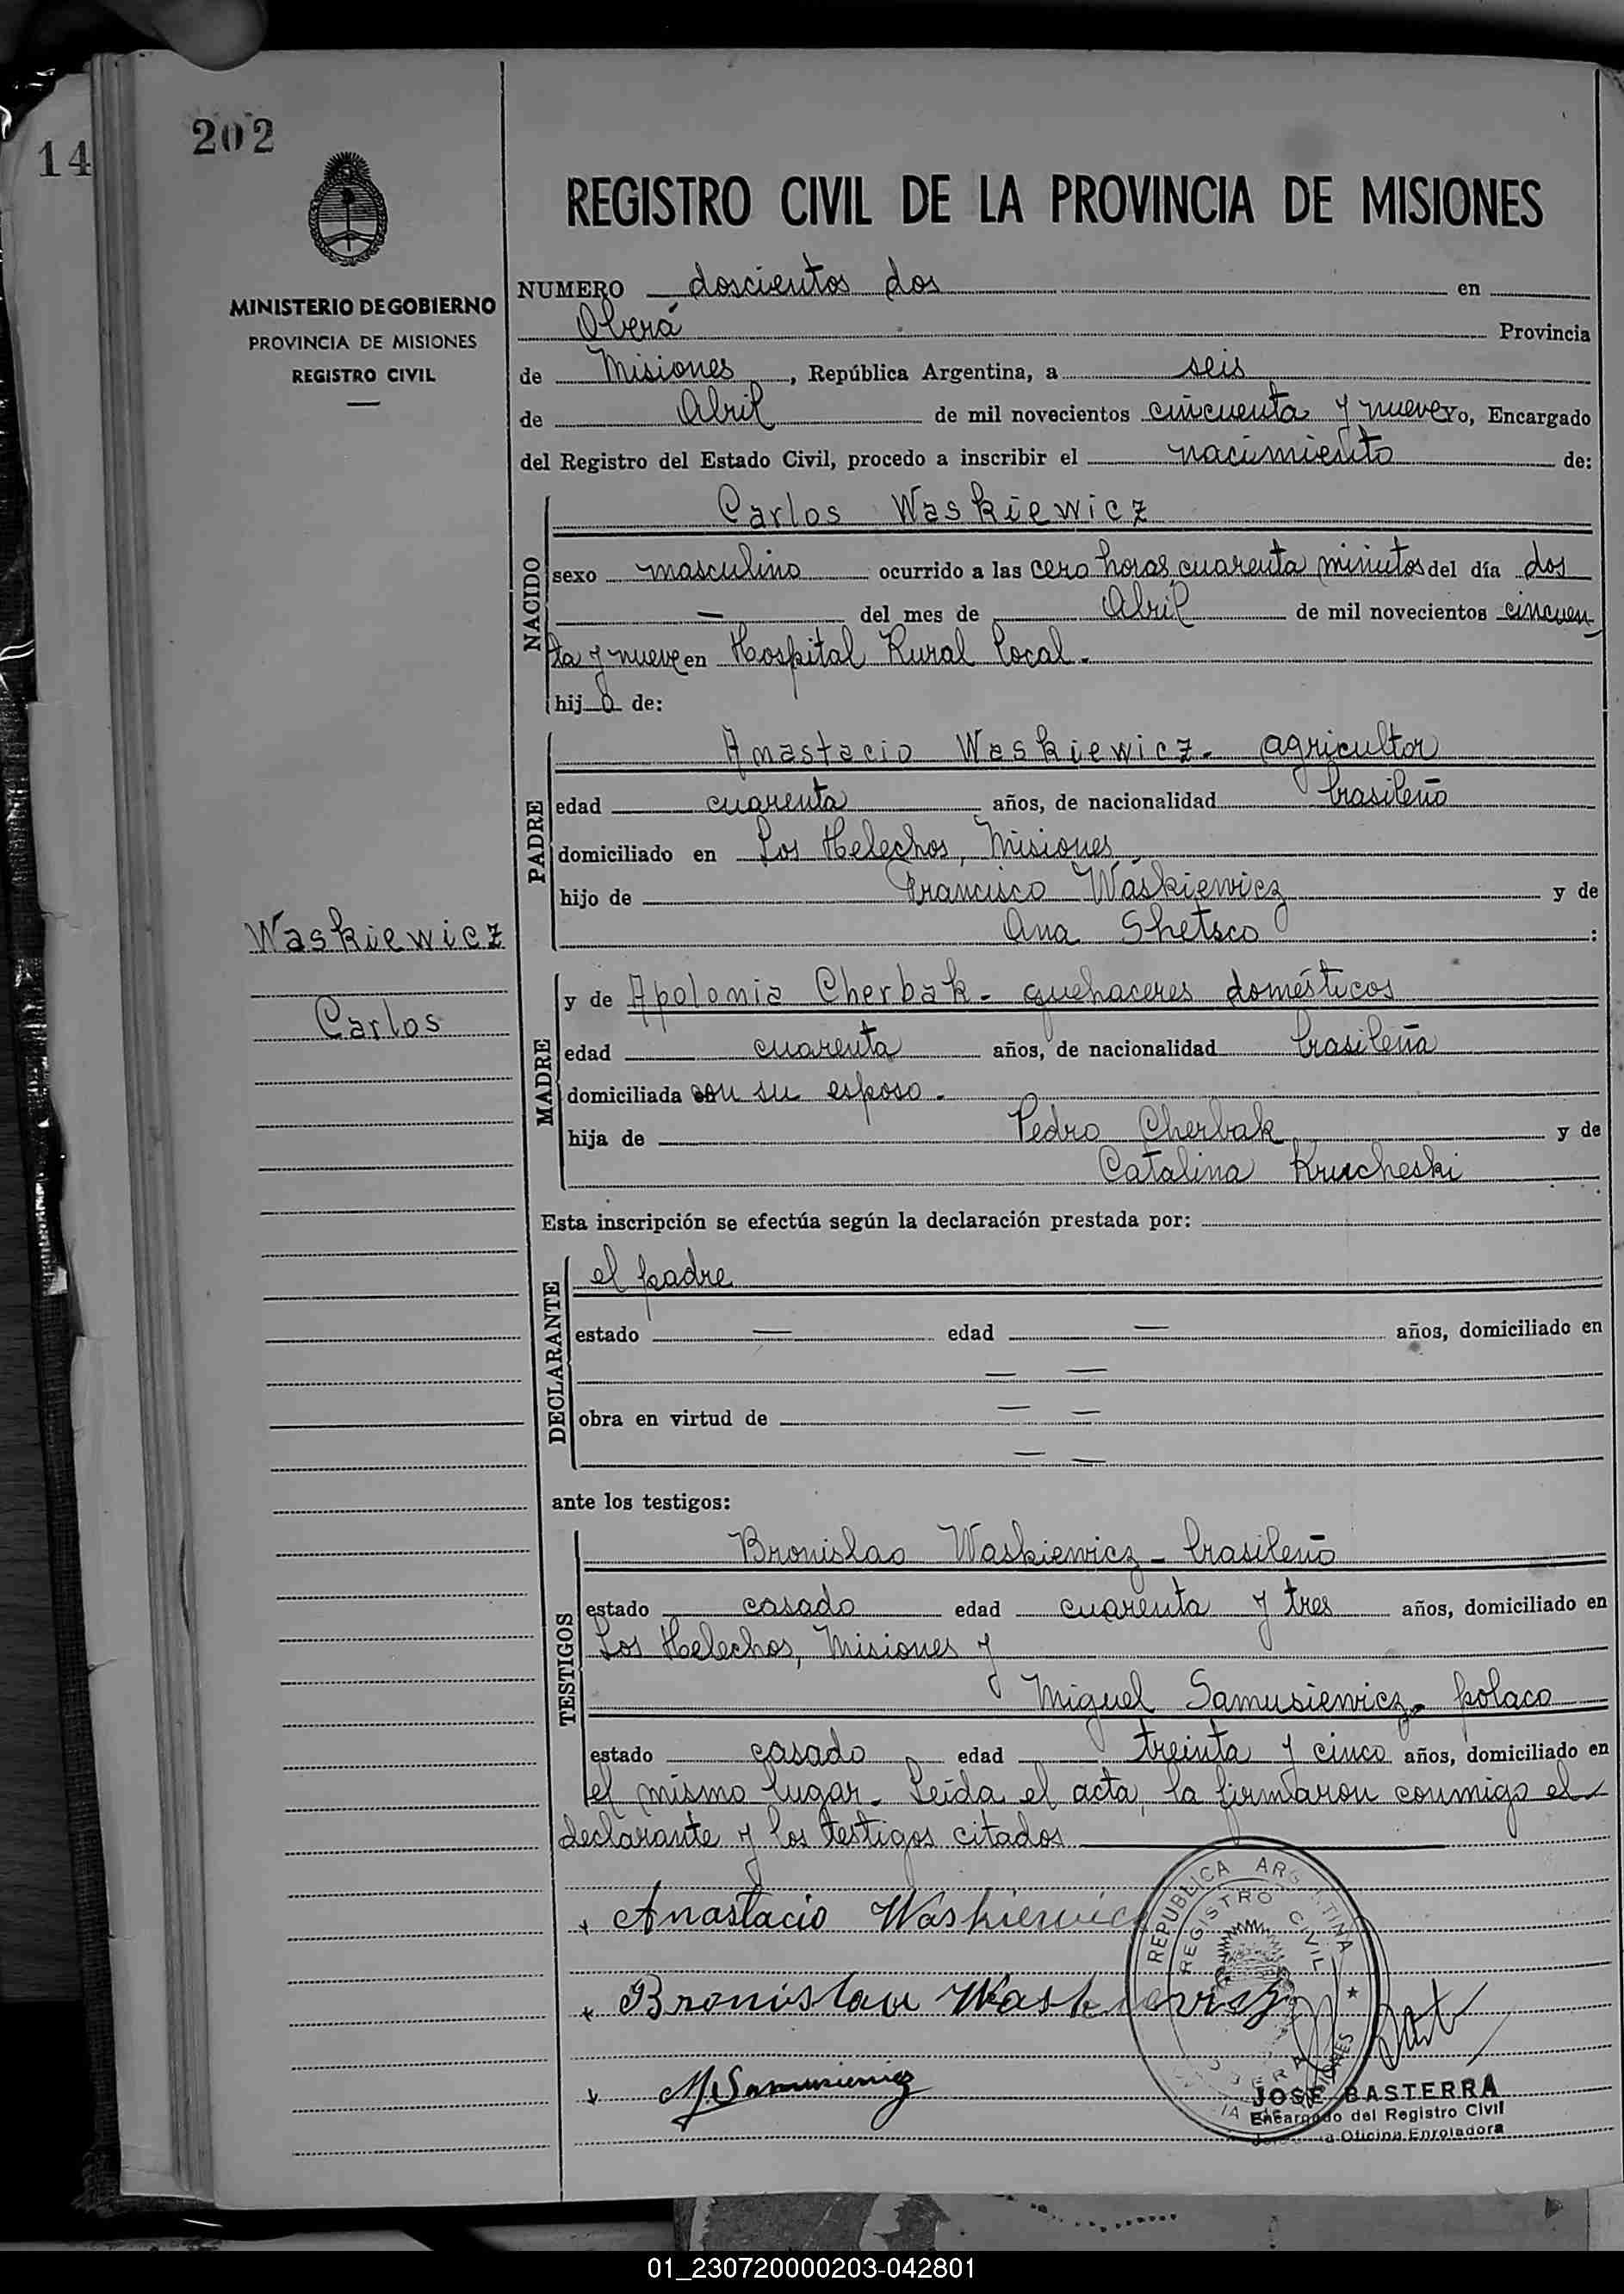 14
202
MINISTERIO DE GOBIERNO
PROVINCIA DE MISIONES
REGISTRO CIVIL
REGISTRO CIVIL DE LA PROVINCIA DE MISIONES
NUMERO doscientos dos en
Oberá Provincia
de Misiones, República Argentina, a seis
de Abril de mil novecientos cincuenta y nueve Yo, Encargado
del Registro del Estado Civil, procedo a inscribir el nacimiento de:
NACIDO
Carlos Waskiewicz
sexo masculino ocurrido a las cero horas cuarenta minutos del día dos
— del mes de Abril de mil novecientos cincuen
ta y nueve en Hospital Rural Local.-
hijo de:
PADRE
Anastacio Waskiewicz- agricultor
edad cuarenta años, de nacionalidad brasileño
domiciliado en Los Helechos, Misiones
hijo de Francisco Waskiewicz y de
Ana Shetsco :
Waskiewicz
Carlos
MADRE
y de Apolonia Cherbak- quehaceres domésticos
edad cuarenta años, de nacionalidad brasileña
domiciliada con su esposo.-
hija de Pedro Cherbak y de
Catalina Krucheski
Esta inscripción se efectúa según la declaración prestada por:
DECLARANTE
el padre
estado — edad — años, domiciliado en
— —
obra en virtud de — —
— —
ante los testigos:
TESTIGOS
Bronislao Waskiewicz- brasileño
estado casado edad cuarenta y tres años, domiciliado en
Los Helechos, Misiones y
Miguel Samusiewicz- polaco
estado casado edad treinta y cinco años, domiciliado en
el mismo lugar- Leída el acta, la firmaron conmigo el
declarante y los testigos citados
Anastacio Waskiewicz
Bronislau
M. Samusiewicz
REPUBLICA ARGENTINA
REGISTRO CIVIL
OBERA
MISIONES
JOSE BASTERRA
Encargado del Registro Civil
Oficina Enroladora
01_230720000203-042801